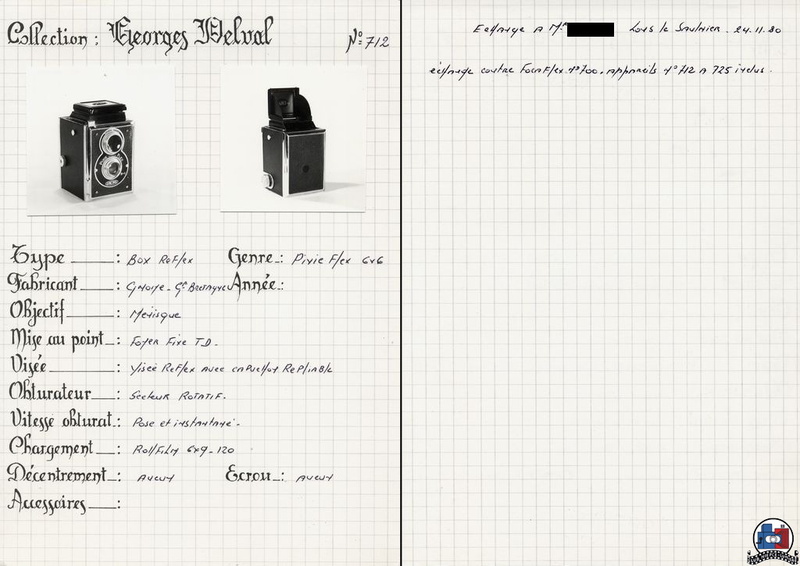 Collection : Georges Delval N° 712
Type : Box Reflex Genre : Pixie Flex 6x6
Fabricant : Gnome - Gde Bretagne Année :
Objectif : Ménisque
Mise au point : Foyer Fixe T.D.
Visée : Visée Reflex avec capuchon Repliable
Obturateur : Secteur Rotatif.
Vitesse obturat. : Pose et instantané.
Chargement : Rollfilm 6x9-120
Décentrement : Aucun Ecrou : Aucun
Accessoires :
Echange A Mr Lons le Saulnier . 24.11.80
échange contre Focaflex n°700. appareils n°712 A 725 inclus.